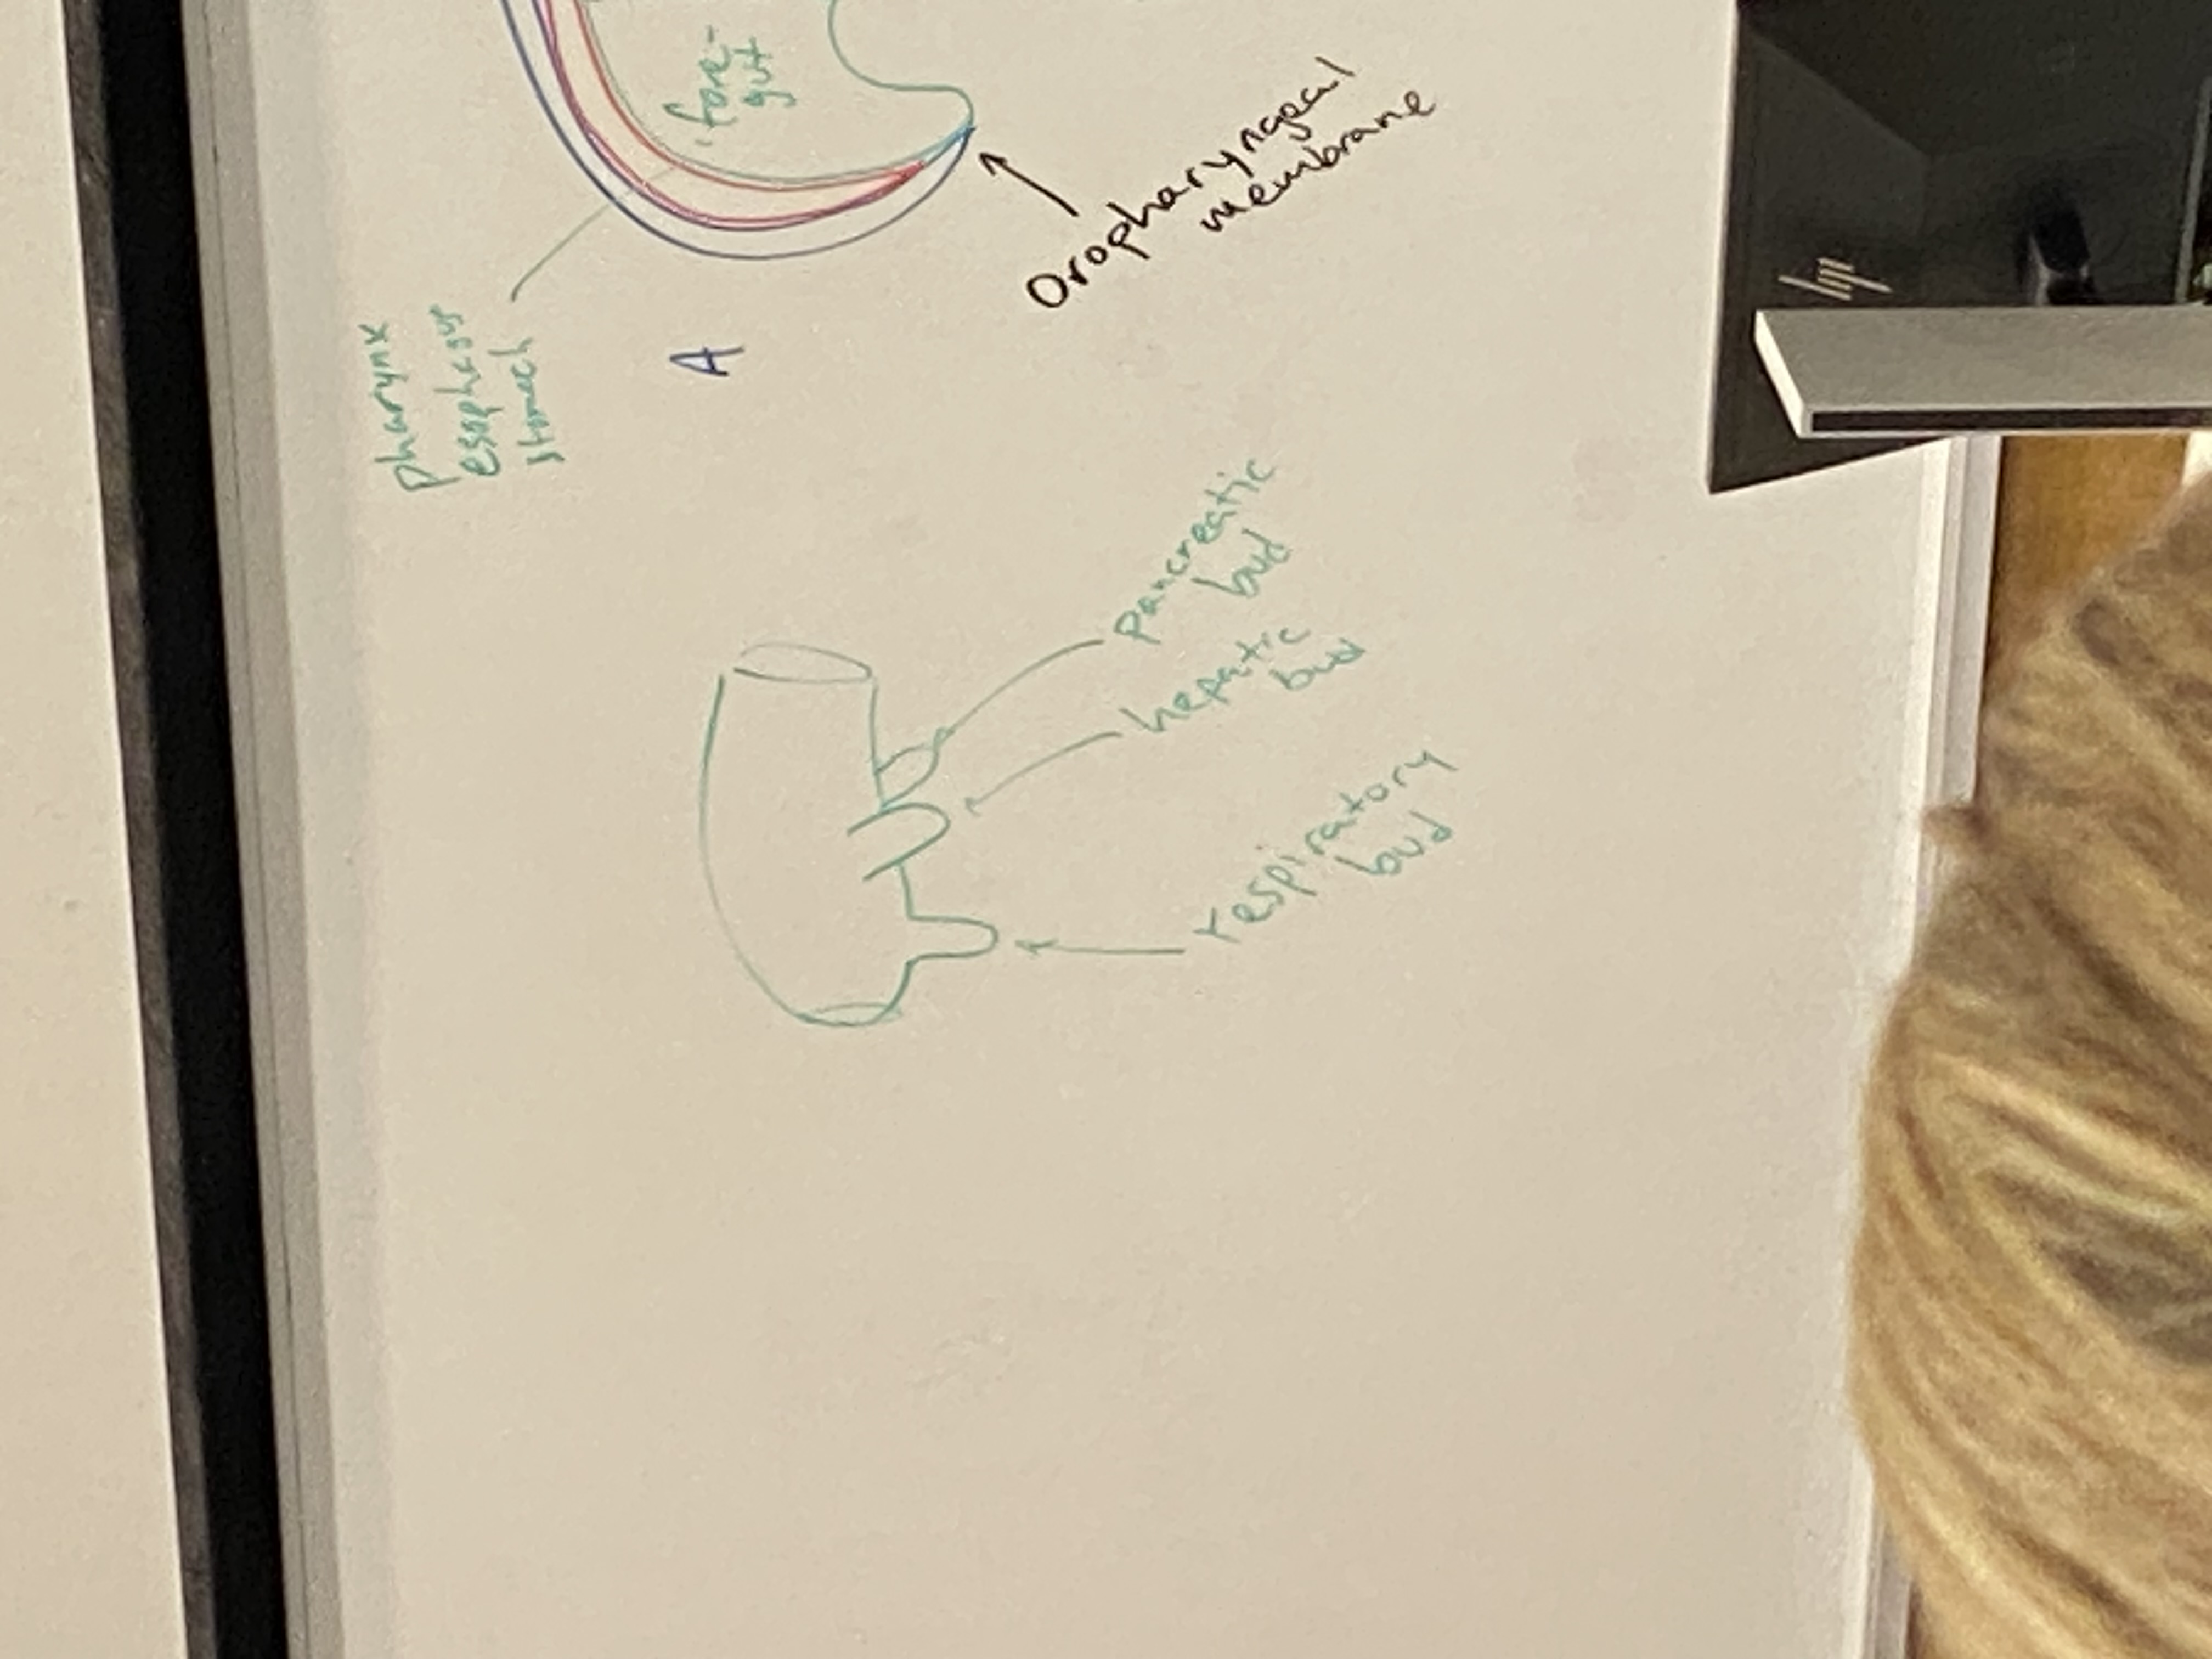 fore-
gut
Oropharyngeal
membrane
pharynx
esophagus
stomach
A
pancreatic
bud
hepatic
bud
respiratory
bud
hp